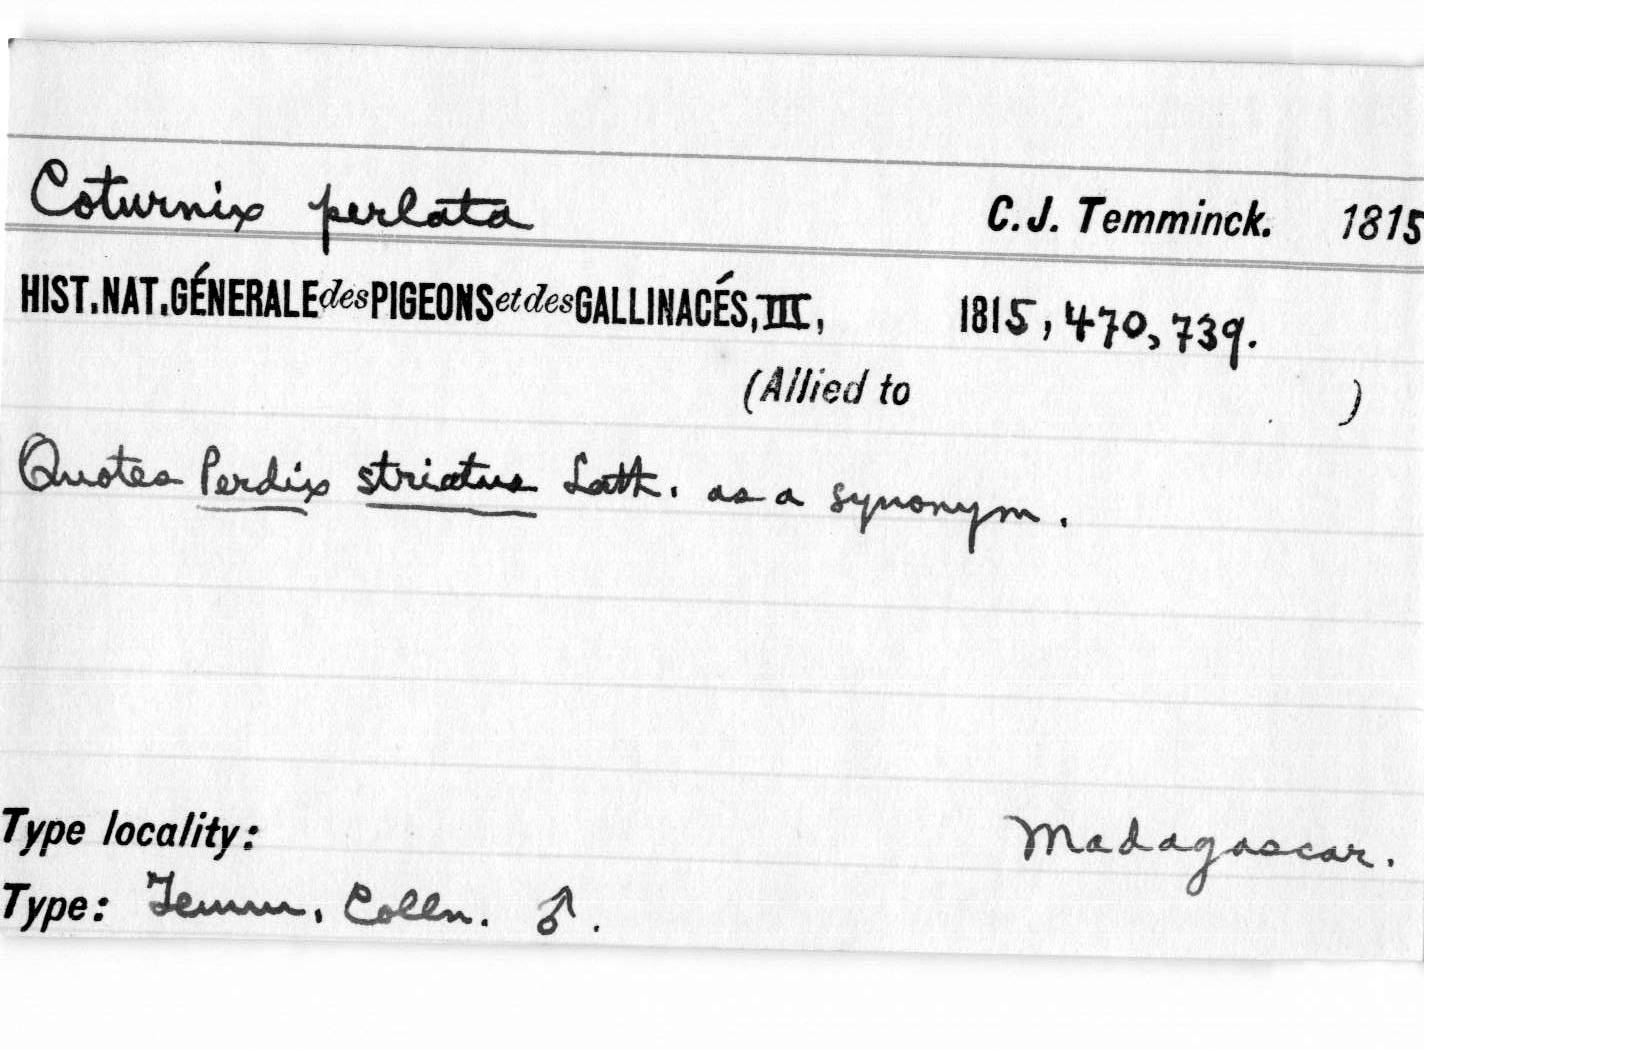 Coturnix perlata C.J. Temminck. 1815
HIST.NAT.GÉNERALE des PIGEONS et des GALLINACÉS, III, 1815, 470, 739.
(Allied to )
Quotes Perdix striatus Lath. as a synonym.
Type locality: Madagascar.
Type: Temm. Colln. ♂.